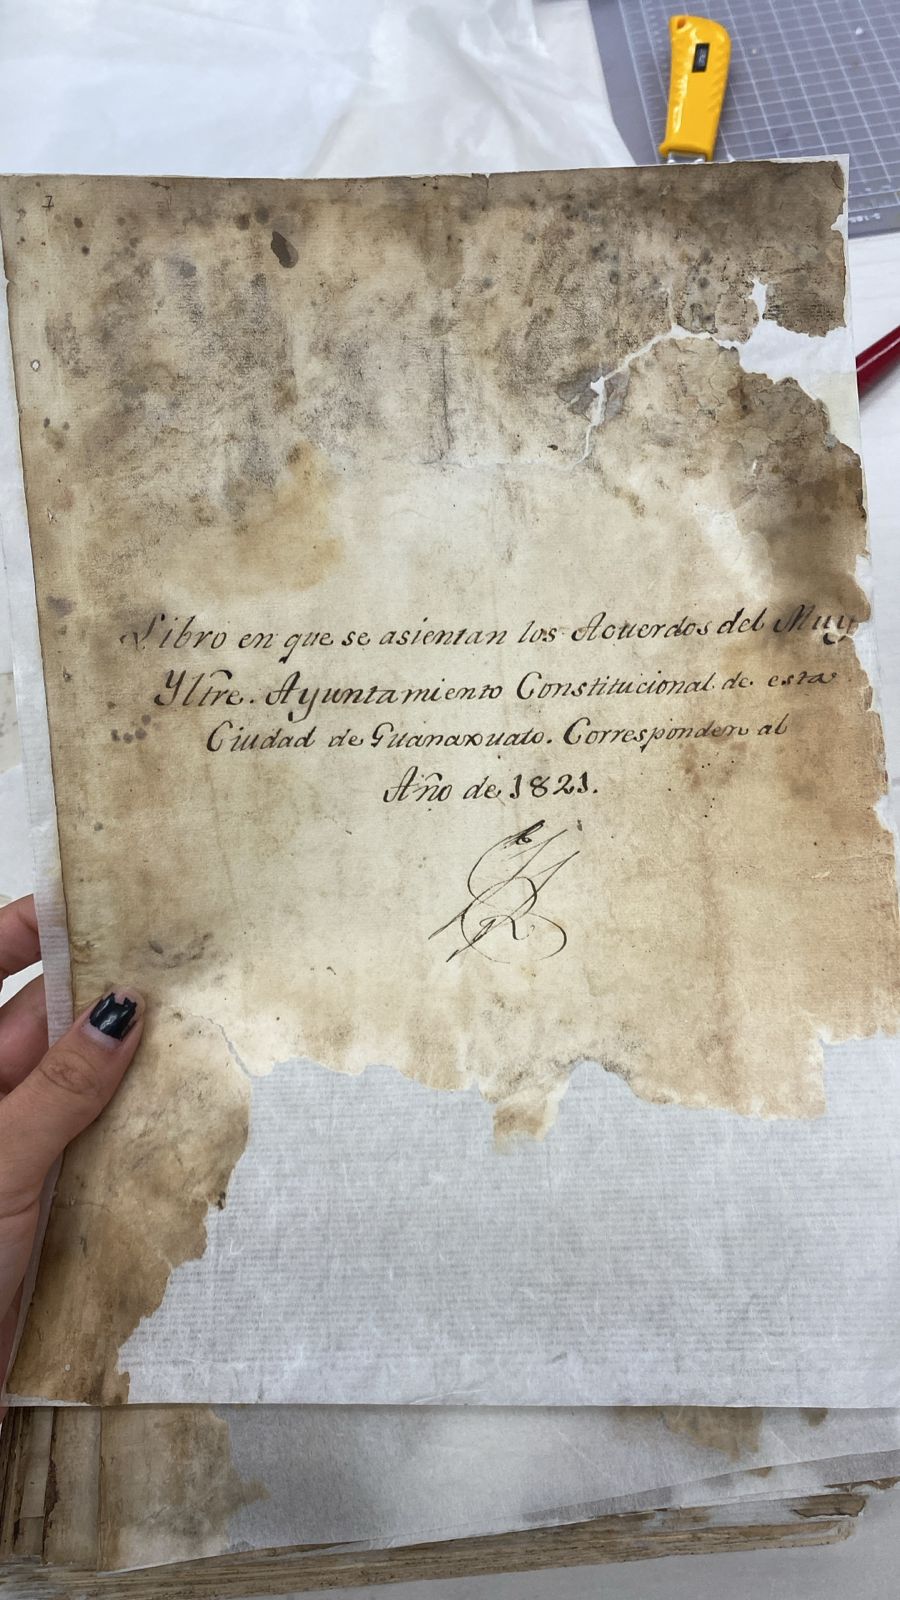 Libro en que se asientan los Acuerdos del Muy
Yltre. Ayuntamiento Constitucional de esta
Ciudad de Guanaxuato. Corresponden al
Año de 1821.